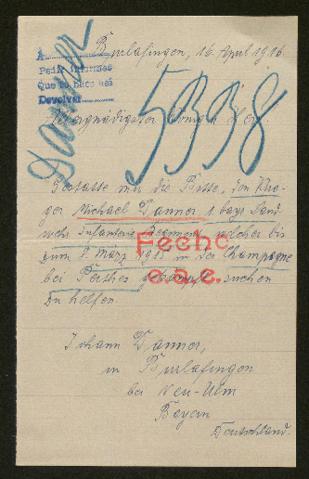 A
Pedir informes
Que se hace así
Devolver
Danner
Burlafingen, 16. April 1916.
5338
Allergnädigster König u. Herr.
Gestatte mir die Bitte, den Krie-
ger Michael Danner 1. bayr. Land-
wehr Infanterie Regiment, welcher bis
zum 8. März 1915 in der Champagne
bei Perthes gekämpft suchen
zu helfen.
Fechc
c.s.c.
Johann Danner,
in Burlafingen
bei Neu-Ulm
Bayern
Deutschland.